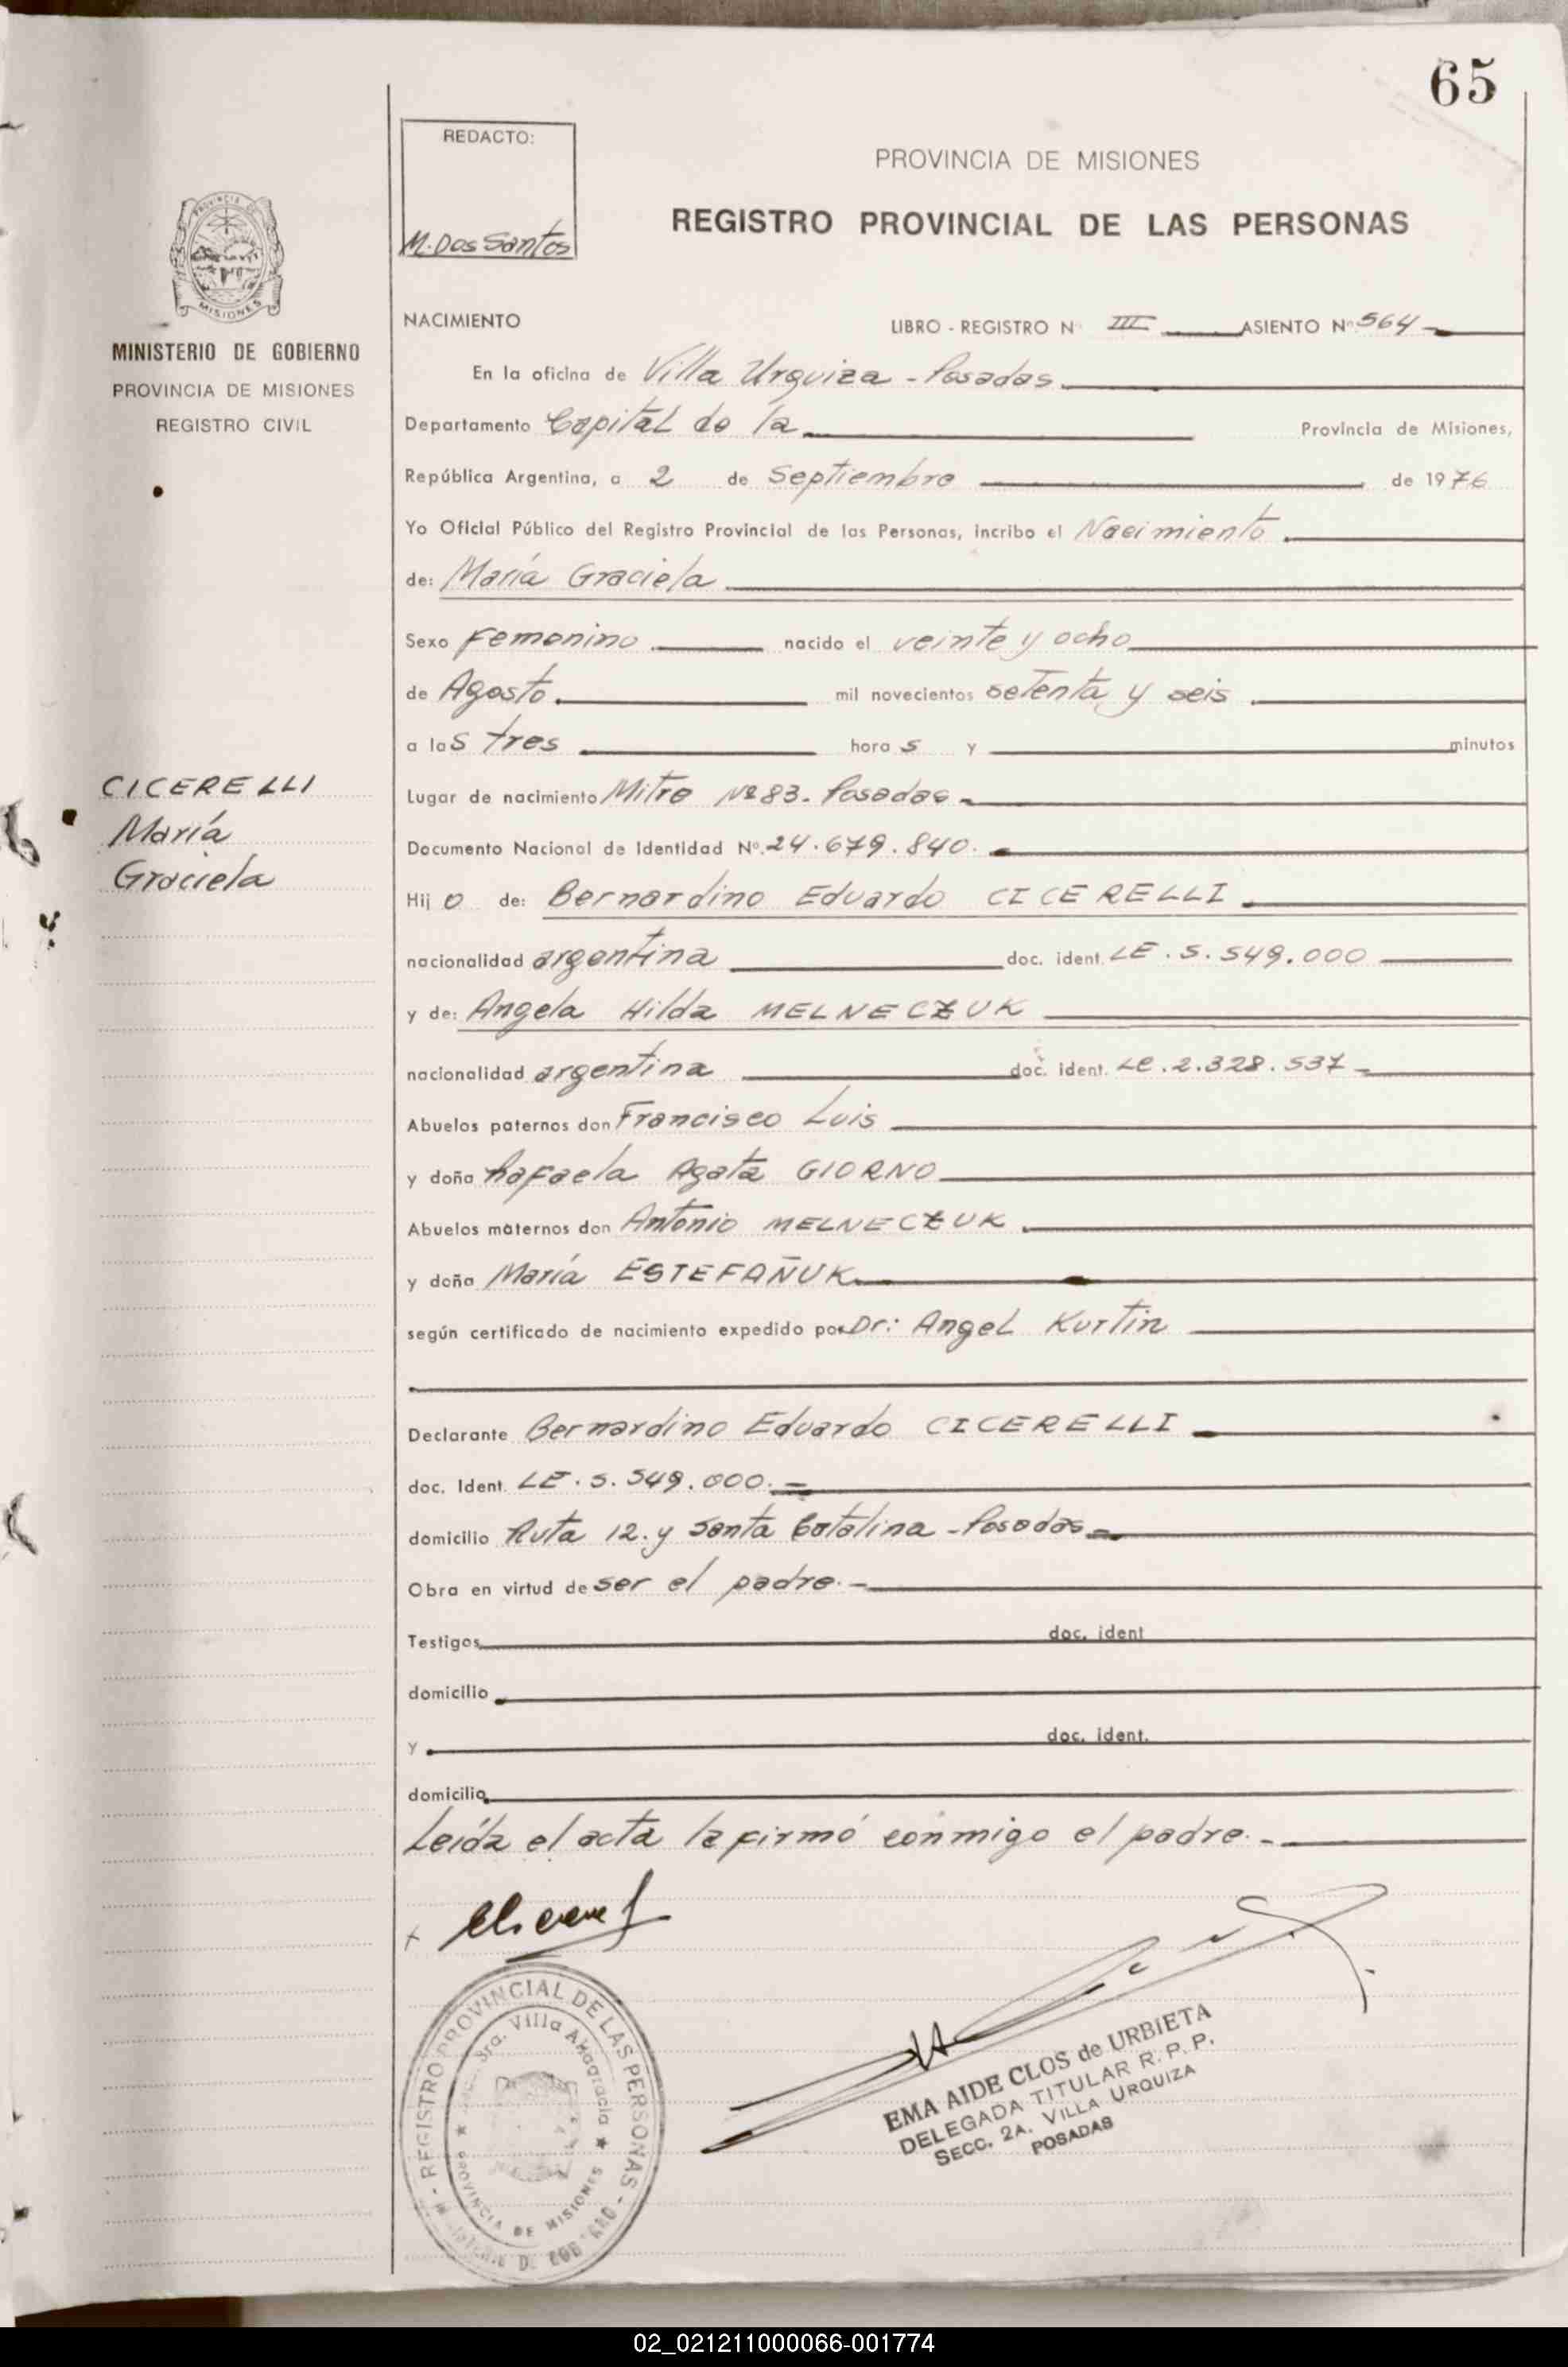 65
REDACTO:
M. Dos Santos
PROVINCIA DE MISIONES
REGISTRO PROVINCIAL DE LAS PERSONAS
MISIONES
MINISTERIO DE GOBIERNO
PROVINCIA DE MISIONES
REGISTRO CIVIL
NACIMIENTO LIBRO - REGISTRO Nº III ASIENTO Nº 564
En la oficina de Villa Urquiza - Posadas
Departamento Capital de la Provincia de Misiones,
República Argentina, a 2 de Septiembre de 1976
Yo Oficial Público del Registro Provincial de las Personas, incribo el Nacimiento
de: María Graciela
Sexo Femenino nacido el veinte y ocho
de Agosto mil novecientos setenta y seis
a las tres horas y minutos
CICERELLI
María
Graciela
Lugar de nacimiento Mitre Nº 83. Posadas
Documento Nacional de Identidad Nº. 24.679.840.
Hijo de: Bernardino Eduardo CICERELLI
nacionalidad argentina doc. ident. LE. 5.549.000
y de: Angela Hilda MELNECZUK
nacionalidad argentina doc. ident. LC. 2.328.537
Abuelos paternos don Francisco Luis
y doña Rafaela Agata GIORNO
Abuelos maternos don Antonio MELNECZUK
y doña María ESTEFAÑUK
según certificado de nacimiento expedido por Dr: Angel Kurtin
Declarante Bernardino Eduardo CICERELLI
doc. Ident. LE. 5.549.000.
domicilio Ruta 12. y Santa Catalina - Posadas
Obra en virtud de ser el padre.
Testigos doc. ident
domicilio
y doc. ident.
domicilio
Leída el acta la firmó conmigo el padre.
REGISTRO PROVINCIAL DE LAS PERSONAS
PROVINCIA DE MISIONES
EMA AIDE CLOS de URBIETA
DELEGADA TITULAR R. P. P.
SECC. 2A. VILLA URQUIZA
POSADAS
02_021211000066-001774